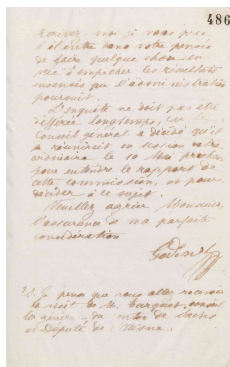 486
écrivez moi je vous prie
s'il entre dans votre pensée
de faire quelque chose en
vue d'empêcher les résultats
insensés que l'administration
poursuit.
L'enquête ne doit pas être
différée longtemps, car le
Conseil général a décidé qu'il
se réunirait en session extra
ordinaire le 10 Mai prochain
pour entendre le rapport de
cette commission, et pour
décider à ce sujet.
Veuillez agréer Monsieur,
l'assurance de ma parfaite
considération
Godin
Je pense que vous allez recevoir
la visite de M. Turquet, conseiller
général du canton de
et Député de l'Aisne.